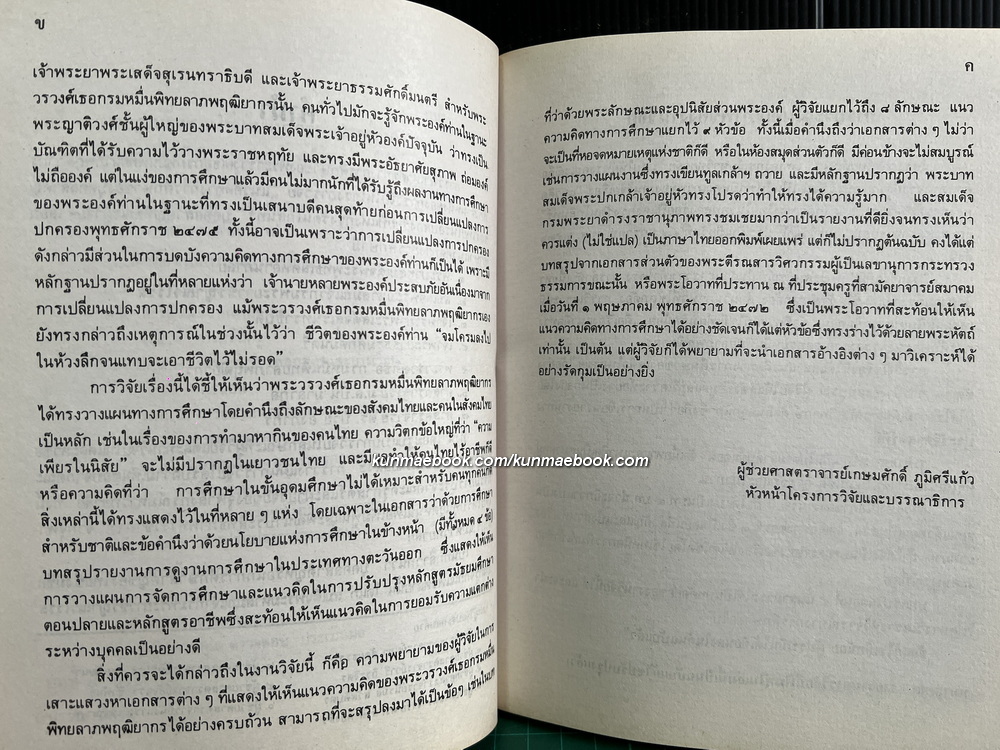 ข
เจ้าพระยาพระเสด็จสุเรนทราธิบดี และเจ้าพระยาธรรมศักดิ์มนตรี สำหรับพระ
วรวงศ์เธอกรมหมื่นพิทยลาภพฤฒิยากรนั้น คนทั่วไปมักจะรู้จักพระองค์ท่านในฐานะ
พระญาติวงศ์ชั้นผู้ใหญ่ของพระบาทสมเด็จพระเจ้าอยู่หัวองค์ปัจจุบัน ว่าทรงเป็น
บัณฑิตที่ได้รับความไว้วางพระราชหฤทัย และทรงมีพระอัธยาศัยสุภาพ ถ่อมองค์
ไม่ถือองค์ แต่ในแง่ของการศึกษาแล้วมีคนไม่มากนักที่ได้รับรู้ถึงผลงานทางการศึกษา
ของพระองค์ท่านในฐานะที่ทรงเป็นเสนาบดีคนสุดท้ายก่อนการเปลี่ยนแปลงการ
ปกครองพุทธศักราช ๒๔๗๕ ทั้งนี้อาจเป็นเพราะว่าการเปลี่ยนแปลงการปกครอง
ดังกล่าวมีส่วนในการบดบังความคิดทางการศึกษาของพระองค์ท่านก็เป็นได้ เพราะมี
หลักฐานปรากฏอยู่ในที่หลายแห่งว่า เจ้านายหลายพระองค์ประสบภัยอันเนื่องมาจาก
การเปลี่ยนแปลงการปกครอง แม้พระวรวงศ์เธอกรมหมื่นพิทยลาภพฤฒิยากรเอง
ยังทรงกล่าวถึงเหตุการณ์ในช่วงนั้นไว้ว่า ชีวิตของพระองค์ท่าน “จมโครมลงไป
ในห้วงลึกจนแทบจะเอาชีวิตไว้ไม่รอด”
การวิจัยเรื่องนี้ได้ชี้ให้เห็นว่าพระวรวงศ์เธอกรมหมื่นพิทยลาภพฤฒิยากร
ได้ทรงวางแผนทางการศึกษาโดยคำนึงถึงลักษณะของสังคมไทยและคนในสังคมไทย
เป็นหลัก เช่นในเรื่องของการทำมาหากินของคนไทย ความวิตกข้อใหญ่ที่ว่า “ความ
เพียรในนิสัย” จะไม่มีปรากฏในเยาวชนไทย และมีผลทำให้คนไทยไร้อาชีพก็ดี
หรือความคิดที่ว่า การศึกษาในขั้นอุดมศึกษาไม่ได้เหมาะสำหรับคนทุกคนก็ดี
สิ่งเหล่านี้ได้ทรงแสดงไว้ในที่หลาย ๆ แห่ง โดยเฉพาะในเอกสารว่าด้วยการศึกษา
สำหรับชาติและข้อคำนึงว่าด้วยนโยบายแห่งการศึกษาในข้างหน้า (มีทั้งหมด ๔ ข้อ)
บทสรุปรายงานการดูงานการศึกษาในประเทศทางตะวันออก ซึ่งแสดงให้เห็น
การวางแผนการจัดการศึกษาและแนวคิดในการปรับปรุงหลักสูตรมัธยมศึกษา
ตอนปลายและหลักสูตรอาชีพซึ่งสะท้อนให้เห็นแนวคิดในการยอมรับความแตกต่าง
ระหว่างบุคคลเป็นอย่างดี
สิ่งที่ควรจะได้กล่าวถึงในงานวิจัยนี้ ก็คือ ความพยายามของผู้วิจัยในการ
เสาะแสวงหาเอกสารต่าง ๆ ที่แสดงให้เห็นแนวความคิดของพระวรวงศ์เธอกรมหมื่น
พิทยลาภพฤฒิยากรได้อย่างครบถ้วน สามารถที่จะสรุปลงมาได้เป็นข้อๆ เช่นในบท
ค
ที่ว่าด้วยพระลักษณะและอุปนิสัยส่วนพระองค์ ผู้วิจัยแยกไว้ถึง ๘ ลักษณะ แนว
ความคิดทางการศึกษาแยกไว้ ๙ หัวข้อ ทั้งนี้เมื่อคำนึงถึงว่าเอกสารต่าง ๆ ไม่ว่า
จะเป็นที่หอจดหมายเหตุแห่งชาติก็ดี หรือในห้องสมุดส่วนตัวก็ดี มีค่อนข้างจะไม่สมบูรณ์
เช่นการวางแผนงานซึ่งทรงเขียนทูลเกล้าฯ ถวาย และมีหลักฐานปรากฏว่า พระบาท
สมเด็จพระปกเกล้าเจ้าอยู่หัวทรงโปรดว่าทำให้ทรงได้ความรู้มาก และสมเด็จ
กรมพระยาดำรงราชานุภาพทรงชมเชยมากว่าเป็นรายงานที่ดียิ่งจนทรงเห็นว่า
ควรแต่ง (ไม่ใช่แปล) เป็นภาษาไทยออกพิมพ์เผยแพร่ แต่ก็ไม่ปรากฏต้นฉบับ คงได้แต่
บทสรุปจากเอกสารส่วนตัวของพระตีรณสารวิศวกรรมผู้เป็นเลขานุการกระทรวง
ธรรมการขณะนั้น หรือพระโอวาทที่ประทาน ณ ที่ประชุมครูที่สามัคยาจารย์สมาคม
เมื่อวันที่ ๑ พฤษภาคม พุทธศักราช ๒๔๗๒ ซึ่งเป็นพระโอวาทที่สะท้อนให้เห็น
แนวความคิดทางการศึกษาได้อย่างชัดเจนก็ได้แต่หัวข้อซึ่งทรงร่างไว้ด้วยลายพระหัตถ์
เท่านั้น เป็นต้น แต่ผู้วิจัยก็ได้พยายามที่จะนำเอกสารอ้างอิงต่าง ๆ มาวิเคราะห์ได้
อย่างรัดกุมเป็นอย่างยิ่ง
kunmaebook.com/kunmaebook.com
ผู้ช่วยศาสตราจารย์เกษมศักดิ์ ภูมิศรีแก้ว
หัวหน้าโครงการวิจัยและบรรณาธิการ